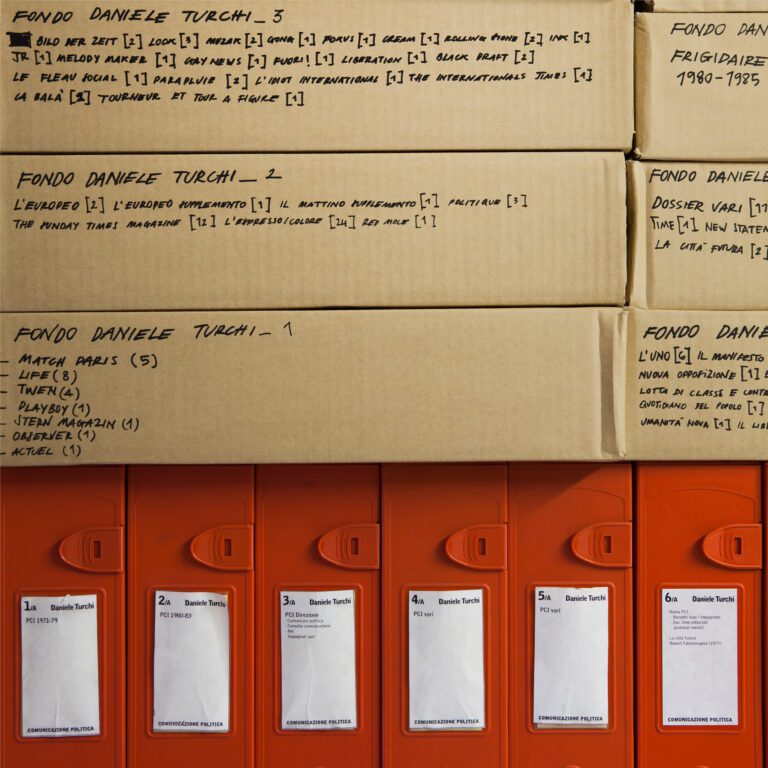 FONDO DANIELE TURCHI_3
BILD DER ZEIT [2] LOOK [3] MUZAK [2] GONG [1] FOKUS [1] CREAM [1] ROLLING STONE [2] INK [1]
JR [1] MELODY MAKER [1] GAY NEWS [1] FUORI! [1] LIBERATION [1] BLACK DRAFT [2]
LE FLEAU SOCIAL [1] PARAPLUIE [2] L'IDIOT INTERNATIONAL [1] THE INTERNATIONALS TIMES [1]
CA BALÀ [2] TOURNEUR ET TOUR A FIGURE [1]
FONDO DAN
FRIGIDAIRE
1980-1985
FONDO DANIELE TURCHI_2
L'EUROPEO [2] L'EUROPEO SUPPLEMENTO [1] IL MATTINO SUPPLEMENTO [1] POLITIQUE [3]
THE SUNDAY TIMES MAGAZINE [12] L'ESPRESSO/COLORE [24] RED MOLE [1]
FONDO DANIELE
DOSSIER VARI [11
TIME [1] NEW STATEM
LA CITTÀ FUTURA [2]
FONDO DANIELE TURCHI_1
- MATCH PARIS (5)
- LIFE (8)
- TWEN (4)
- PLAYBOY (1)
- STERN MAGAZIN (1)
- OBSERVER (1)
- ACTUEL (1)
FONDO DANIE
L'UNO [6] IL MANIFESTO
NUOVA OPPOSIZIONE [1]
LOTTA DI CLASSE E CONTR
QUOTIDIANO DEL POPOLO [1]
UMANITÀ NOVA [1] IL LIB
1/A Daniele Turchi
PCI 1971-79
COMUNICAZIONE POLITICA
2/A Daniele Turchi
PCI 1980-83
COMUNICAZIONE POLITICA
3/A Daniele Turchi
PCI Direzione
- Comunicare politica
- Consulta comunicazione
- Impaginati vari
COMUNICAZIONE POLITICA
4/A Daniele Turchi
PCI vari
COMUNICAZIONE POLITICA
5/A Daniele Turchi
PCI vari
COMUNICAZIONE POLITICA
6/A Daniele Turchi
- Roma PCI
- Bozzetti logo / impaginato
- Doc. linee editoriali
- prototipi mensili
- La città futura
COMUNICAZIONE POLITICA